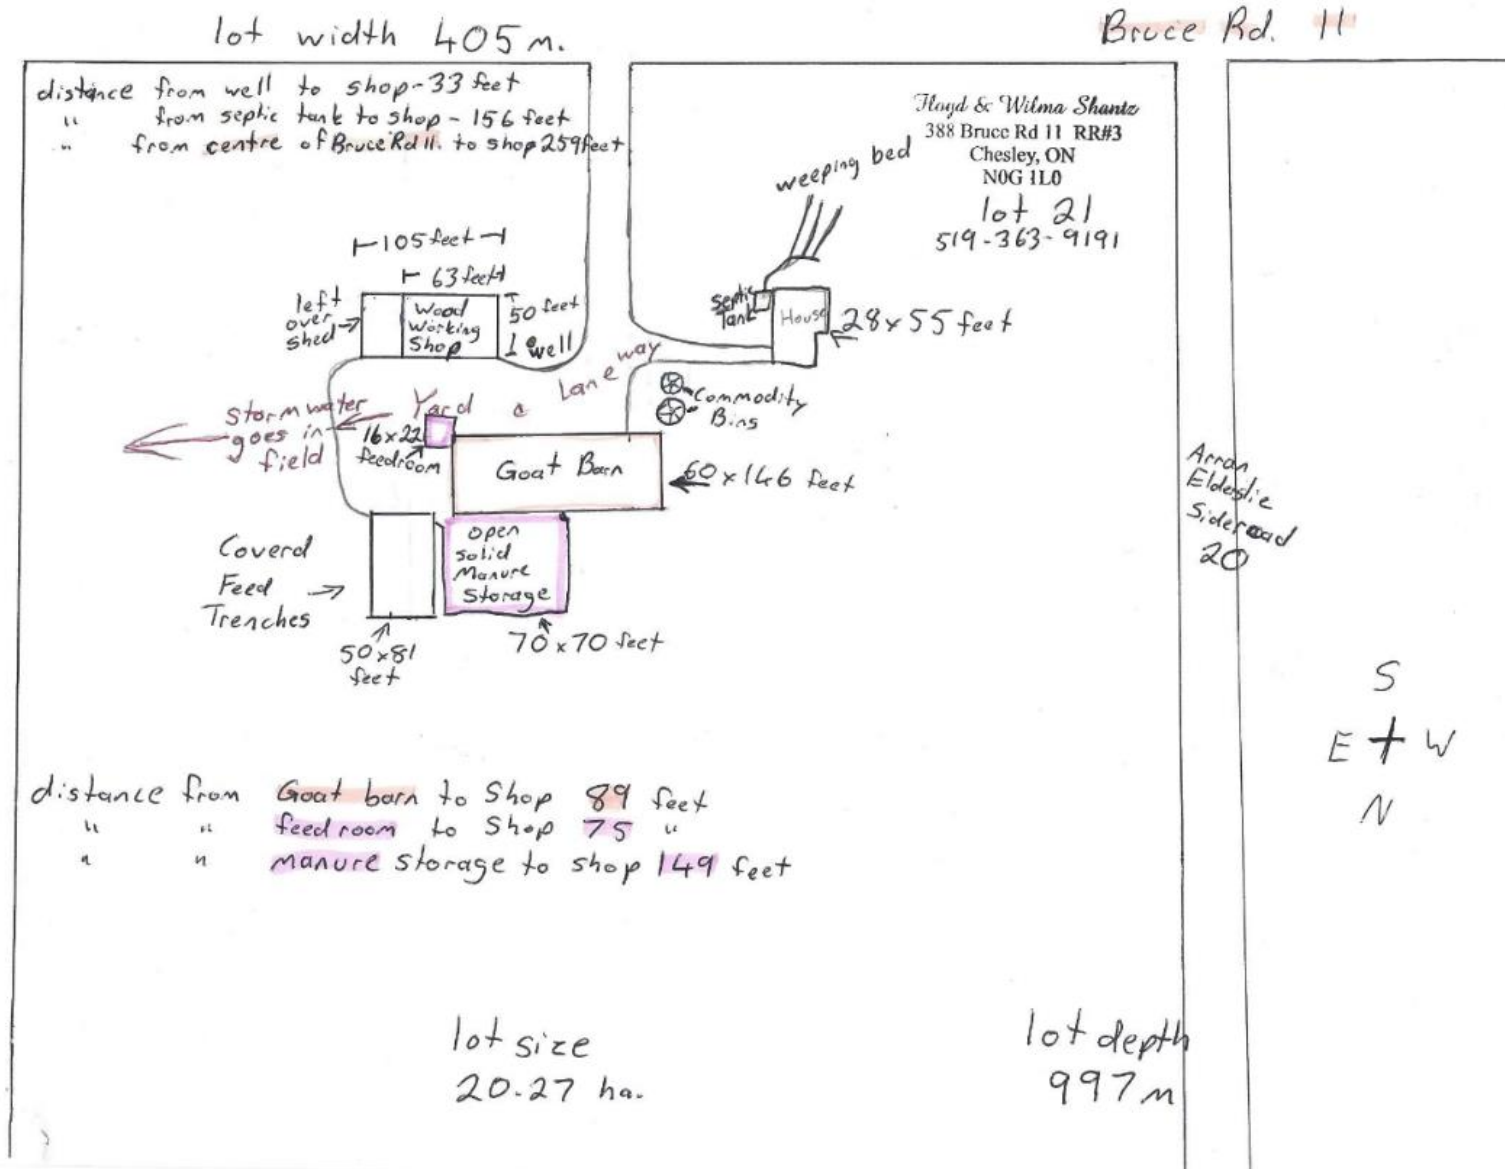 lot width 405 m.
Bruce Rd. 11
distance from well to shop - 33 feet
" from septic tank to shop - 156 feet
" from centre of Bruce Rd 11. to shop 259 feet
Floyd & Wilma Shantz
388 Bruce Rd 11 RR#3
Chesley, ON
N0G 1L0
lot 21
519-363-9191
weeping bed
105 feet
63 feet
left
over
shed
Wood
Working
Shop
50 feet
well
Septic
Tank
House
28 x 55 feet
Laneway
Commodity
Bins
Yard
Storm water
goes in
field
16x22
feedroom
Goat Barn
60 x 146 feet
Arran
Elderslie
Sideroad
20
Coverd
Feed
Trenches
open
solid
Manure
Storage
50 x 81
feet
70 x 70 feet
S
E W
N
distance from Goat barn to Shop 89 feet
" " feedroom to Shop 75 "
" " manure storage to shop 149 feet
lot size
20.27 ha.
lot depth
997 m